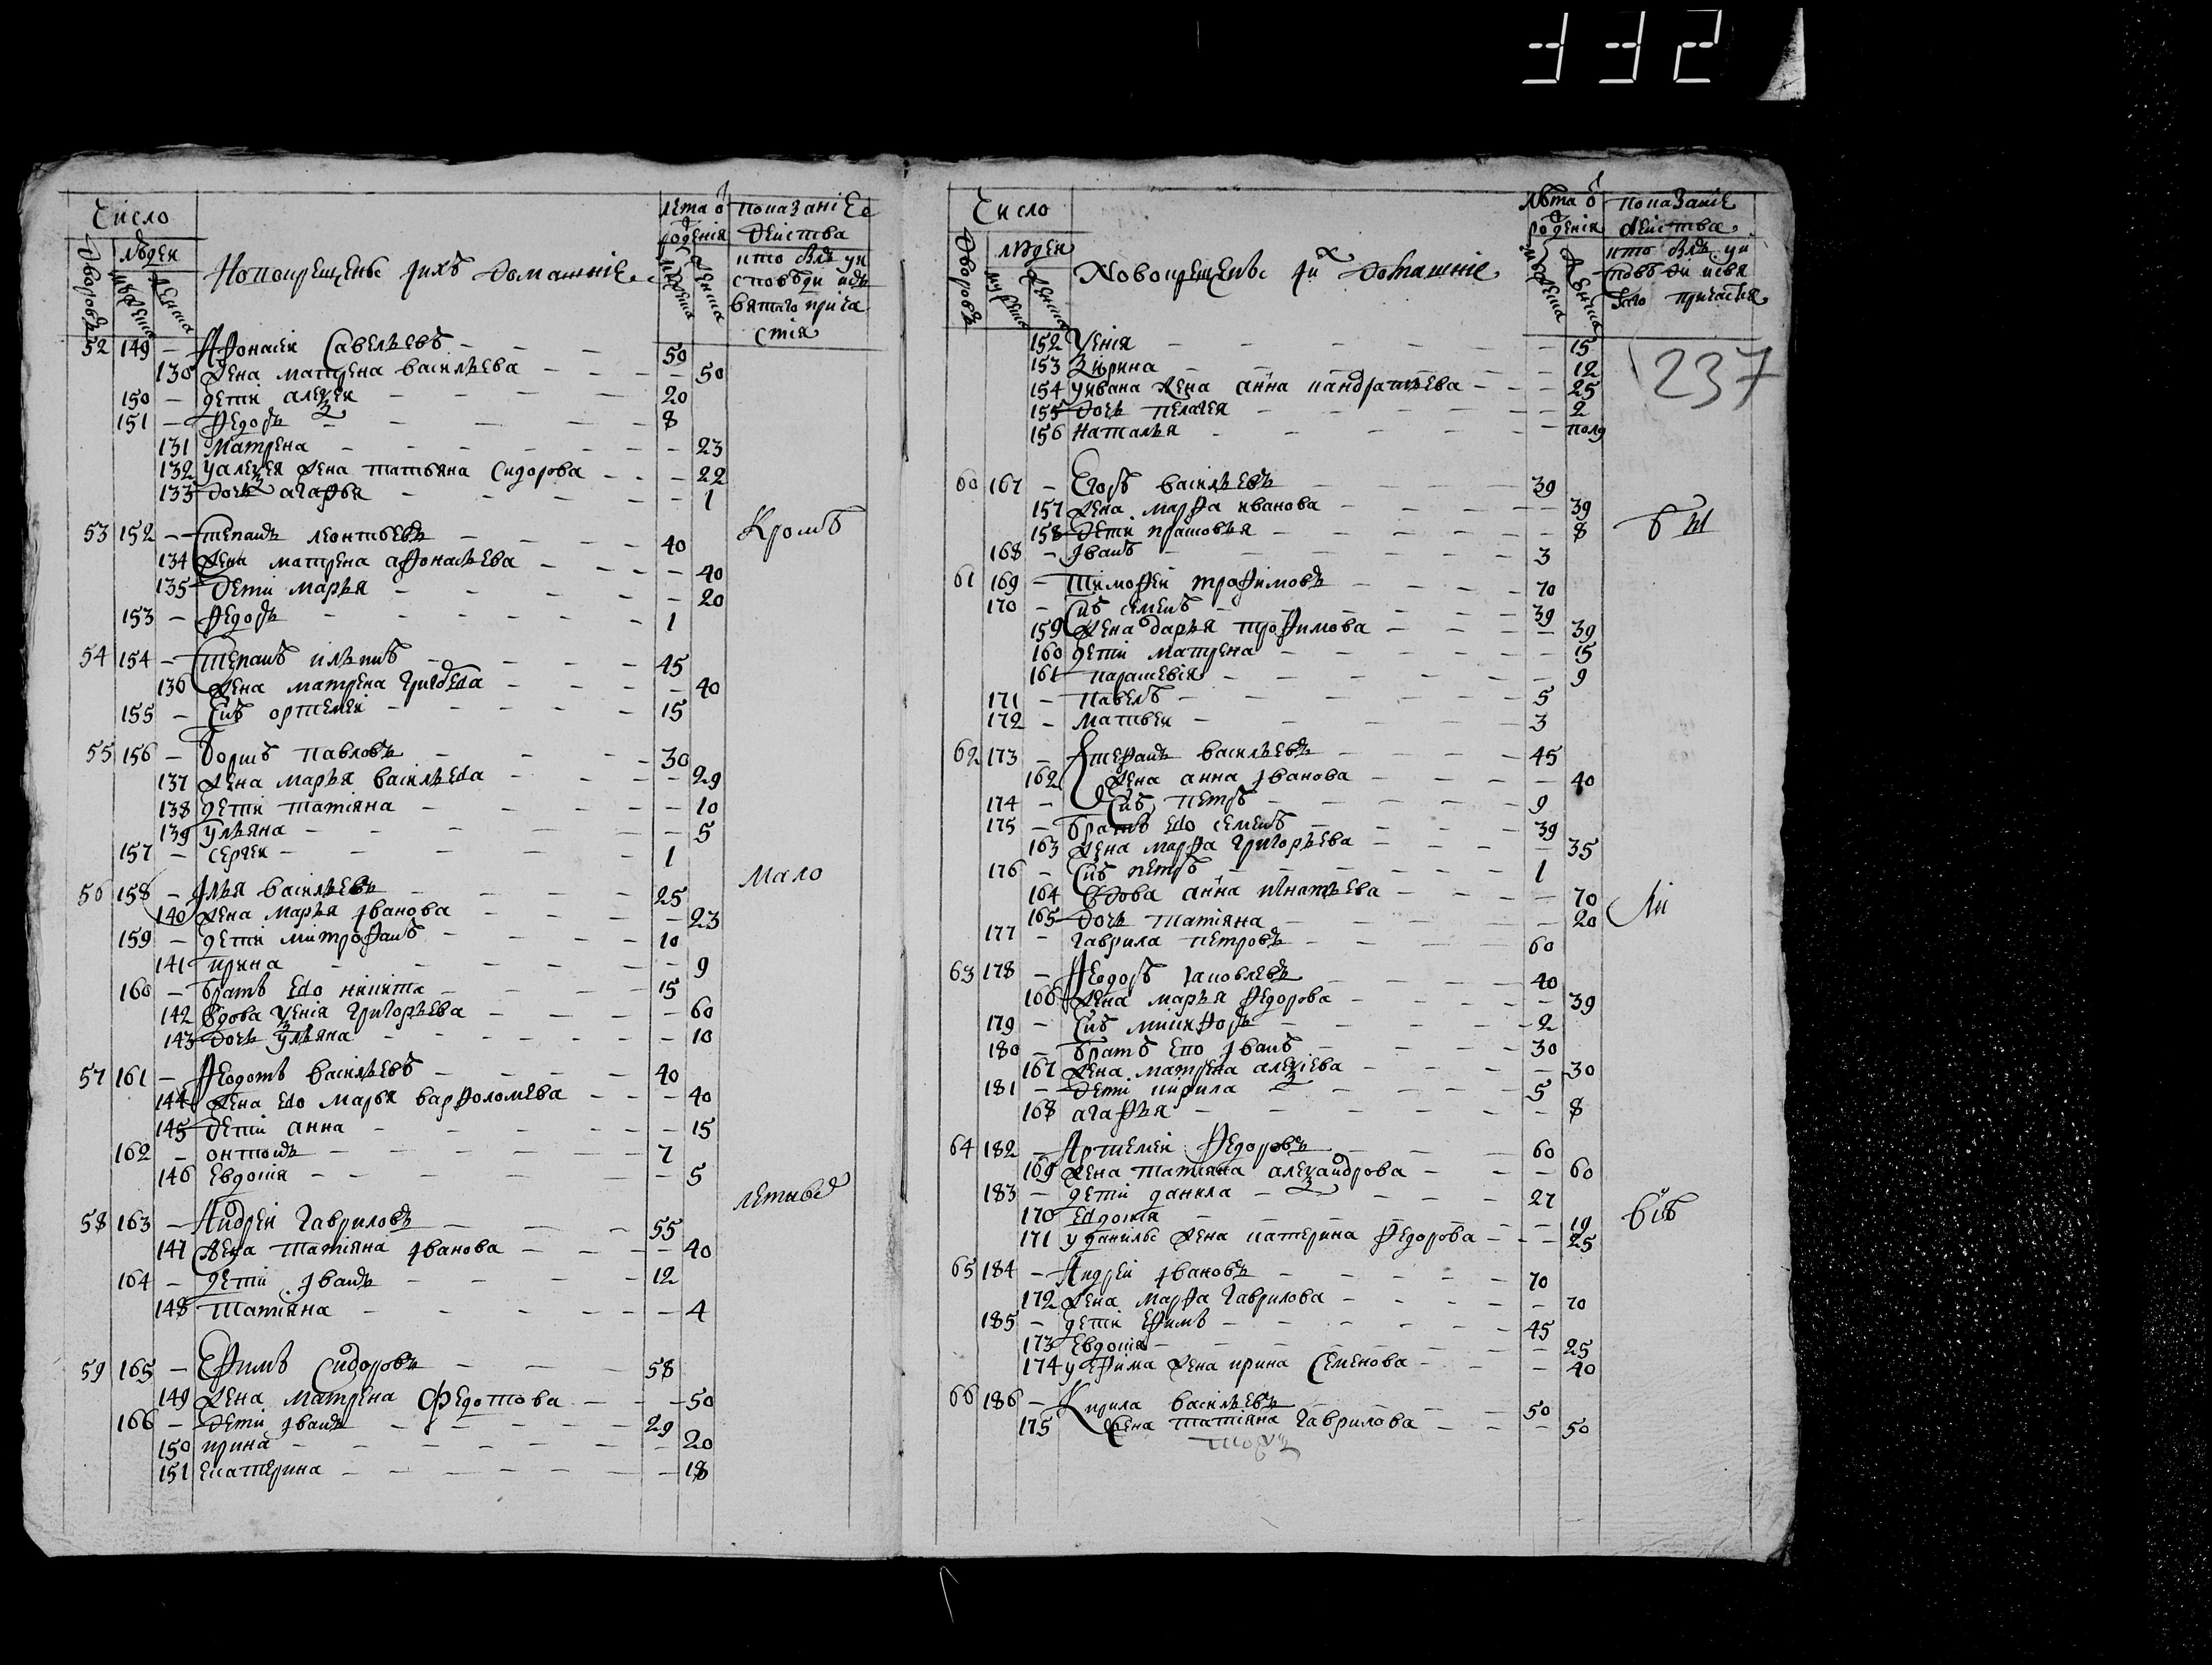 332
Число
Дворовъ
людей
мужеска
женска
Новокрещены и ихъ домашніе
лета ѿ рожденія
мужеска
женска
показаніе
действа
кто былъ у и
споведи и св
вятаго прича
стия
52 149 – Афонасеи Савельевъ – 50
130 жена матрена васильева – 50
150 – дети алеѯеи – 20
151 – Федоръ – 8
131 матрена – 23
132 у алеѯея жена татьяна сидорова – 22
133 дочь агафья – 1
53 152 – Степанъ леонтьевъ – 40
Кромѣ
134 жена матрена афонасьева – 40
135 дети марья – 20
153 – Федоръ – 1
54 154 – Степанъ ильинъ – 45
136 жена матрена григоева – 40
155 – сынъ ортемеи – 15
55 156 – Борисъ павловъ – 30
137 жена марья васильева – 29
138 дети татіяна – 10
139 ульяна – 5
157 – сергеи – 1
мало
56 158 – Илья васильевъ – 25
140 жена марья иванова – 23
159 – дети митрофанъ – 10
141 ирина – 9
160 – братъ его никита – 15
142 вдова ѯенія григорьева – 60
143 дочь ульяна – 10
57 161 – Федотъ васильевъ – 40
144 жена его марья варфоломѣева – 40
145 дети анна – 15
162 – онтонъ – 7
146 евдокія – 5
летные
58 163 – Андреи гавриловъ – 55
147 жена татіяна иванова – 40
164 – дети иванъ – 12
148 татіяна – 4
59 165 – Ефимъ Сидоровъ – 58
149 жена матрена Федотова – 50
166 – дети иванъ – 29
150 ирина – 20
151 екатерина – 18
Число
Дворовъ
людеи
мужеска
женска
Новокрещены и их домашніе
лѣта ѿ рожденія
мужеска
женска
показаніе
действа
кто былъ у и
споведи и свя
таго причастия
152 ѯенія – 15
237
153 зирина – 12
154 у ивана жена анна кандратьева – 25
155 дочь пелагея – 2
156 наталья – полг
60 167 – Егоръ васильевъ – 39
157 жена марфа иванова – 39
бы
158 дети прасковья – 8
168 – иванъ – 3
61 169 – Тимофеи трофимовъ – 70
170 – сынъ семенъ – 39
159 жена дарья трофимова – 39
160 дети матрена – 15
161 парашевія – 9
171 – павелъ – 5
172 – матвеи – 3
62 173 – Стефанъ васильевъ – 45
162 жена анна иванова – 40
174 – сынъ петръ – 9
175 – братъ его семенъ – 39
163 жена марфа григорьева – 35
176 – сынъ петръ – 1
164 вдова анна игнатьева – 70
ли
165 дочь татіяна – 20
177 – гаврила петровъ – 60
63 178 – Феодоръ яковлевъ – 40
166 жена марья Федорова – 39
179 – сынъ никифоръ – 2
180 – братъ его иванъ – 30
167 жена матрена алеѯіева – 30
181 – дети кирила – 5
168 агафья – 8
64 182 – Артемеи Федоровъ – 60
169 жена татіяна алеѯандрова – 60
183 – дети данила – 27
170 евдокія – 19
всѣ
171 у данилы жена катерина Федорова – 25
65 184 – Андреи ивановъ – 70
172 жена марфа гаврилова – 70
185 – дети ефимъ – 45
173 евдокія – 25
174 у ефима жена ирина Семенова – 40
66 186 – Кирила васильевъ – 50
175 жена татіяна гаврилова – 50